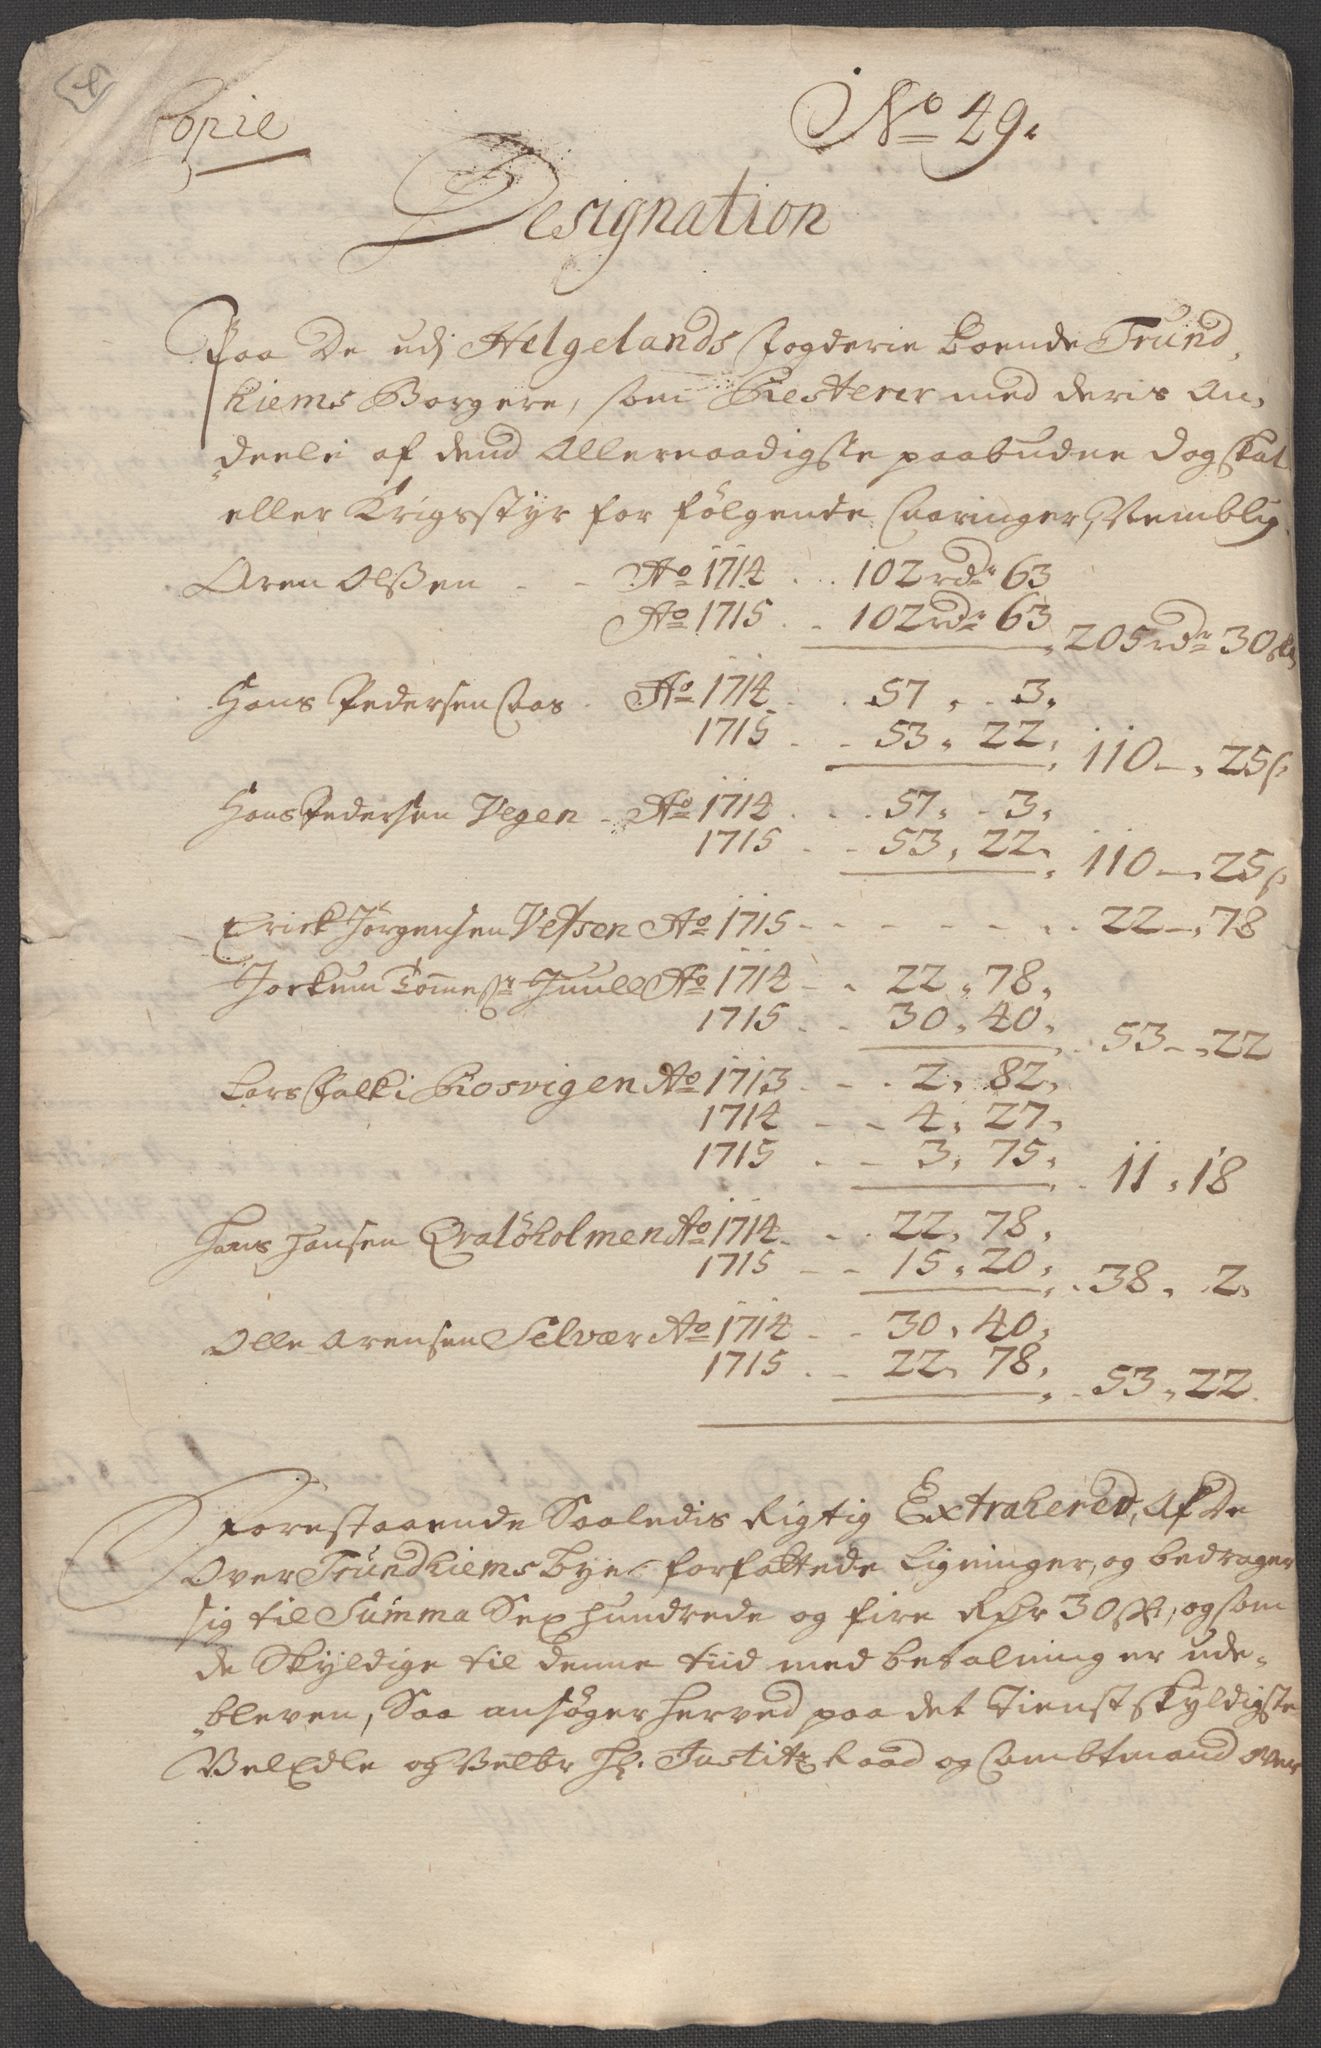 Copie
No 49.
Designation
Paa De udj Helgelands fogderie Boende Trund,
hiems Borgere, som Resterer med deris An,
deele af dend Allernaadigste paabudne Dagskat
eller Krigsstyr for følgende Aaringer, Nemblig.
Aren Olßen - - Ao 1714 . . 102 rdr 63
Ao 1715 . . 102 rdr 63
205 rdr 30 sk
Hans Pedersen Aas . Ao 1714 . . 57 . . 3.
1715 . . 53. 22.
110 -. 25 s
Hans Pedersen Vegen - Ao 1714 . . 57. . 3.
1715 . . 53. 22.
110 -. 25 s
Erick Jørgensen Vefsen Ao 1715 - - - - - . . 22 -. 78
Jockum Tomesr Juull Ao 1714 - . 22. 78.
1715 . . 30. 40.
53 -. 22
Lars Falk i Rosvigen Ao 1713 . - . 2. 82.
1714 - - 4. 27.
1715 . - 3. 75.
11. 18
Hans Hansen Qvalöholmen Ao 1714 . . 22. 78.
1715 - - 15. 20.
38. 2.
Olle Arensen Selvær Ao 1714 . . 30. 40.
1715 . . 22. 78.
53. 22.
Forestaaende Saaledis Rigtig Extrahered, Af De
Over Trundhiems bye forfattede Ligninger, og bedrager
sig til Summa Sex hundrede og fire Rdr 30 sk, og som
de Skyldige til denne tiid med betalning er ude,
bleven, Saa ansøger herved paa det Tienstskyldigste
VelEdle og Velbr Hr. Justitz Raad og Ambtmand over